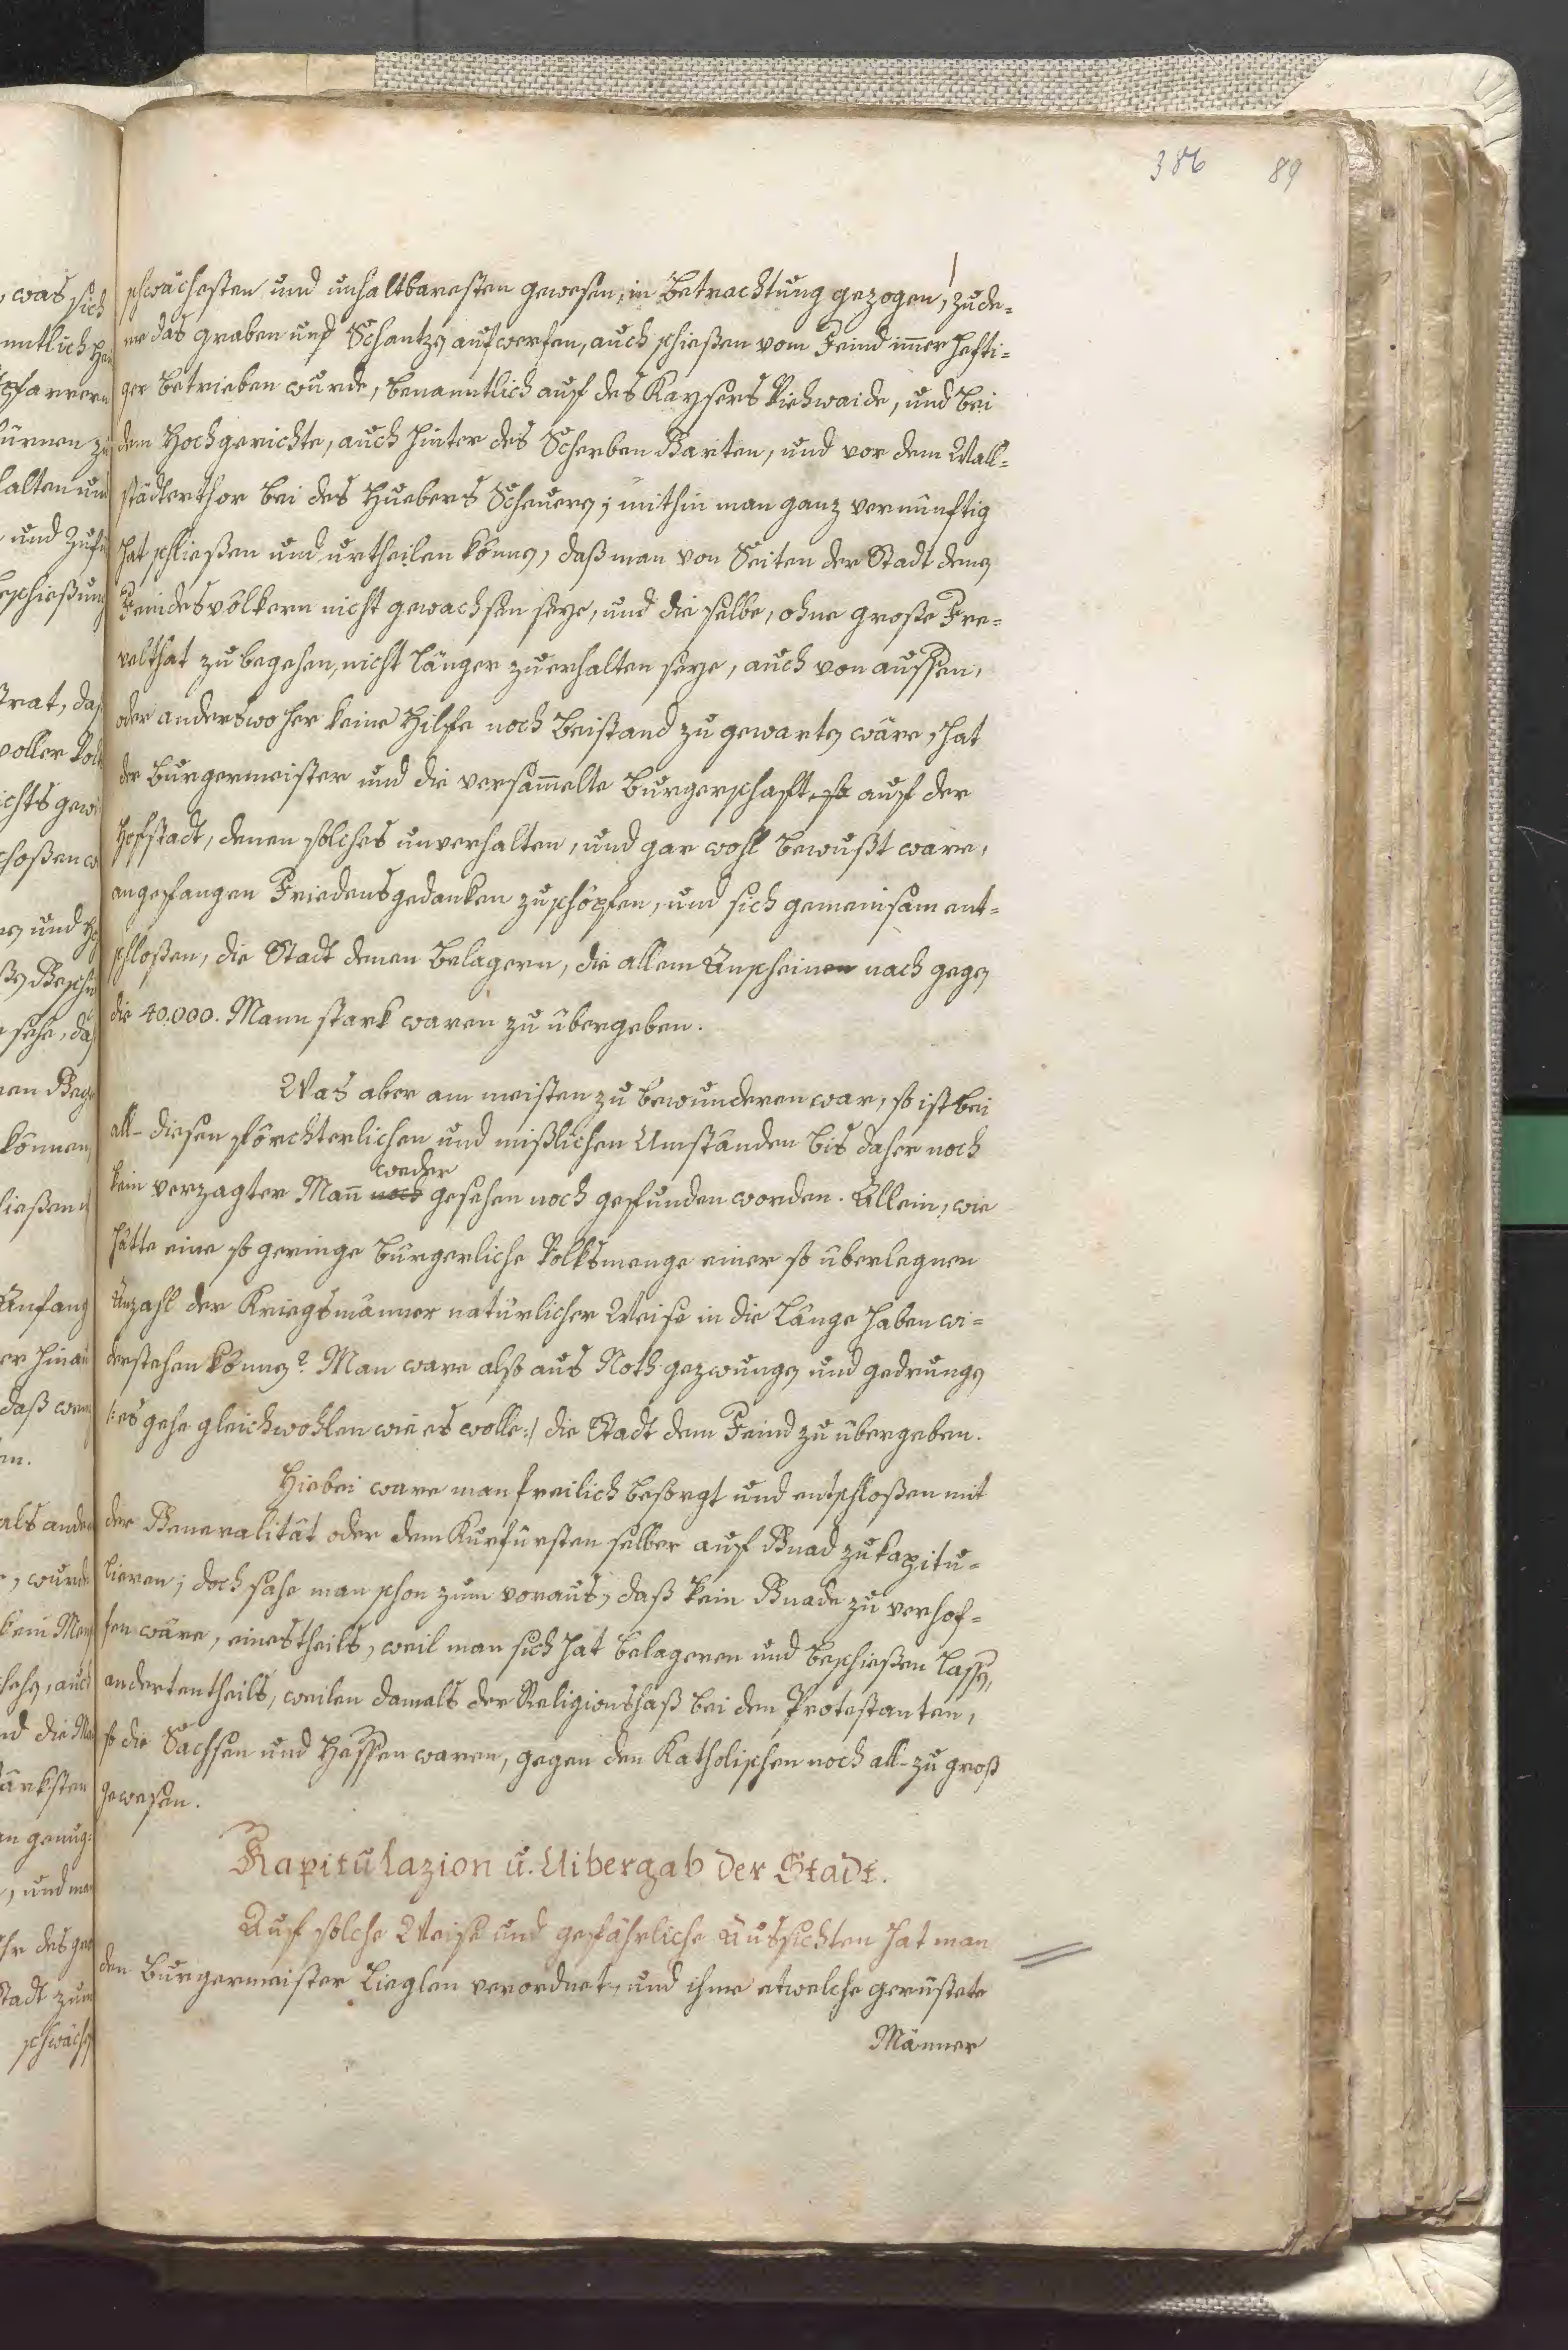 386 89
schwächesten und unhaltbaresten gewesen, in Betrachtung gezogen, zude=
me das graben und Schantzen aufwerfen, auch schießen vom Feind im̄er hefti=
ger betrieben wurde, benanntlich auf des Kaysers Viehwaide, und bei
dem Hochgerichte, auch hinter des Scherben Garten, und vor dem Wall=
städterthor bei des Huebers Scheuern; mithin man ganz vernünftig
hat schließen und urtheilen können, daß man von Seiten der Stadt denen
Feindesvölkern nicht gewachsen seye, und die selbe, ohne große Fre=
velthat zu begehen, nicht länger zuerhalten seye, auch von aussen,
oder anderswo her keine Hilfe noch Beistand zu gewarten wäre, hat
der Burgermeister und die versam̄elte Burgerschaft, so auf der
Hofstadt, denen solches unverhalten, und gar wohl bewußt ware,
angefangen Friedensgedanken zuschöpfen, und sich gemeinsam ent=
schloßen, die Stadt denen Belagern, die allem Anscheinen nach gegen
die 40.000. Mann stark waren zu übergeben.
Was aber am meisten zu bewunderen war, so ist bei
all- diesen förchterlichen und mißlichen Umständen bis daher noch
weder
kein verzagter Man̄ noch gesehen noch gefunden worden. Allein, wie
hätte eine so geringe bürgerliche Volksmenge einer so überlegnen
Anzahl der Kriegsmänner natürlicher Weise in die Länge haben wi=
derstehen können? Man ware also aus Noth gezwungen und gedrungen
/:es gehe gleichwohlen wie es wolle:/ die Stadt dem Feind zu übergeben.
Hiebei ware man freilich besorgt und entschloßen mit
der Generalität oder dem Kurfürsten selber auf Gnad zu kapitu=
lieren; doch sahe man schon zum voraus, daß kein Gnade zu verhof=
fen wäre, einestheils, weil man sich hat belageren und beschießen lassen,
andertentheils, weilen damals der Religionshaß bei den Protestanten,
so die Sachsen und Hessen waren, gegen den Katholischen noch all-zu groß
gewesen.
Kapitulazion u. Uibergab der Stadt.
Auf solche Weise und gefährliche Aussichten hat man
den Burgermeister Lieglen verordnet, und ihme etwelche gerüstete
Männer